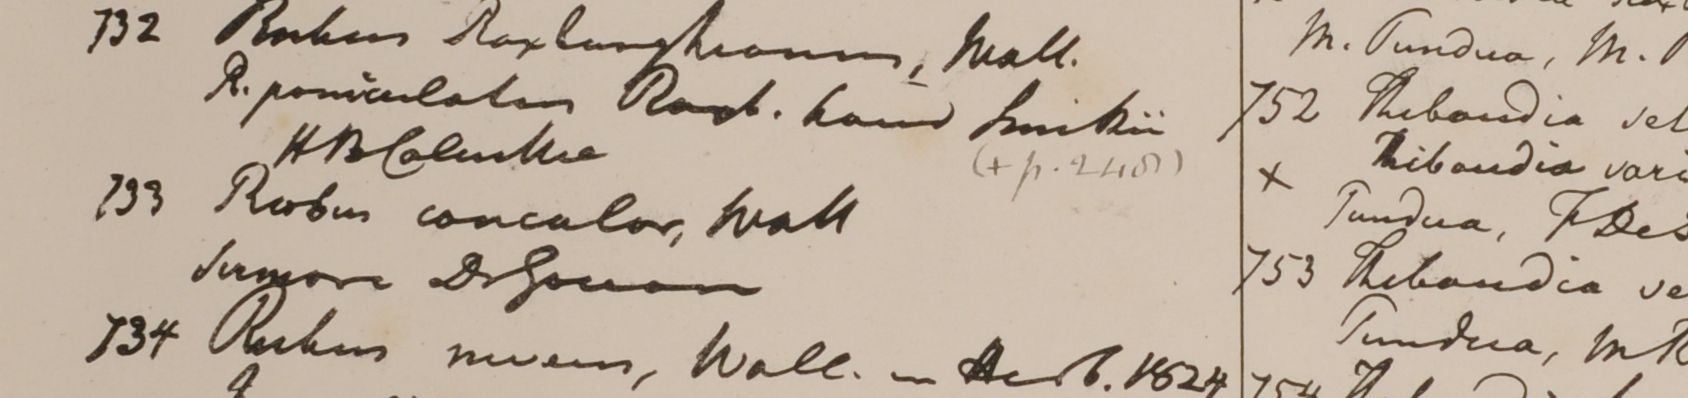 732 Rubus Roxburghianus, Wall.
R. paniculatus Roxb. haud Smithii
H B Colensis
(+ p. 248)
733 Rubus concolor, Wall
Sirmore Dr Govan
734 Rubus niveus, Wall. in Herb. 1824
M. Pundua, M.
752 Thibaudia
Thibaudia vari
x
Pundua, F De S
753 Thibaudia
Pundua, M R
754